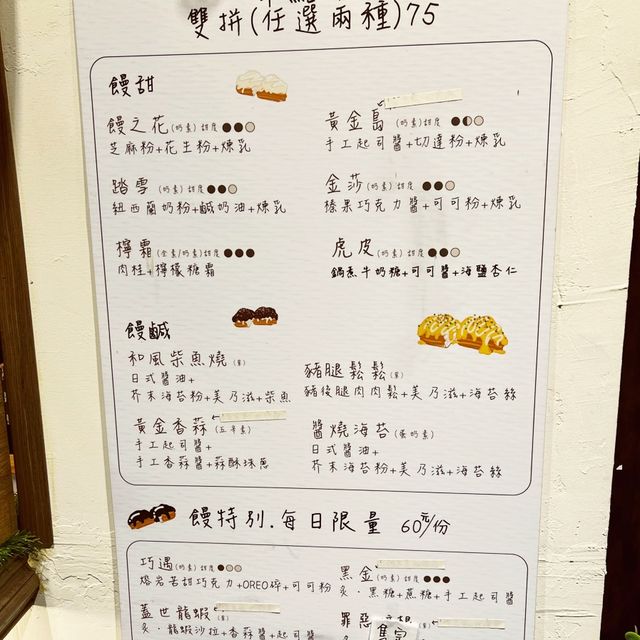 雙拼(任選兩種)75
饅甜
饅之花(奶素)甜度
芝麻粉+花生粉+煉乳
黃金島(奶素)甜度
手工起司醬+切達粉+煉乳
踏雪(奶素)甜度
紐西蘭奶粉+鹹奶油+煉乳
金莎(奶素)甜度
榛果巧克力醬+可可粉+煉乳
檸霜(全素/奶素)甜度
肉桂+檸檬糖霜
虎皮(奶素)甜度
鍋煮牛奶糖+可可醬+海鹽杏仁
饅鹹
和風柴魚燒(葷)
日式醬油+
芥末海苔粉+美乃滋+柴魚
豬腿鬆鬆(葷)
豬後腿肉肉鬆+美乃滋+海苔絲
黃金香蒜(五辛素)
手工起司醬+
手工香蒜醬+蒜酥珠蔥
醬燒海苔(蛋奶素)
日式醬油+
芥末海苔粉+美乃滋+海苔絲
饅特別.每日限量 60元/份
巧遇(奶素)甜度
熔岩苦甜巧克力+OREO碎+可可粉
黑金(奶素)甜度
炙·黑糖+蔗糖+手工起司醬
蓋世龍蝦(葷)
炙·龍蝦沙拉+香蒜醬+起司醬
罪惡
售完